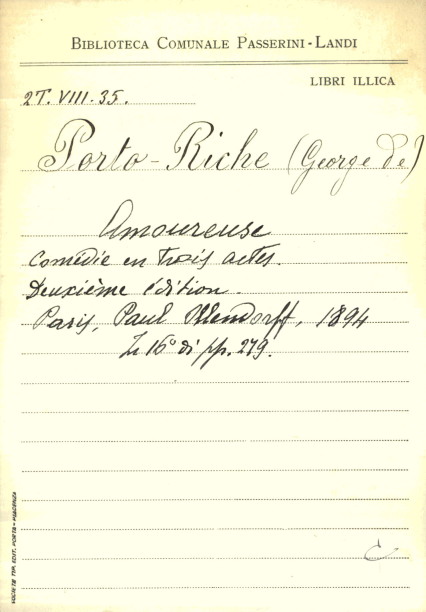 BIBLIOTECA COMUNALE PASSERINI-LANDI
LIBRI ILLICA
2T.VIII.35.
Porto-Riche (George de)
Amoureuse
Comédie en trois actes.
Deuxième édition.
Paris, Paul Ollendorff, 1894
In 16° di pp. 279.
C